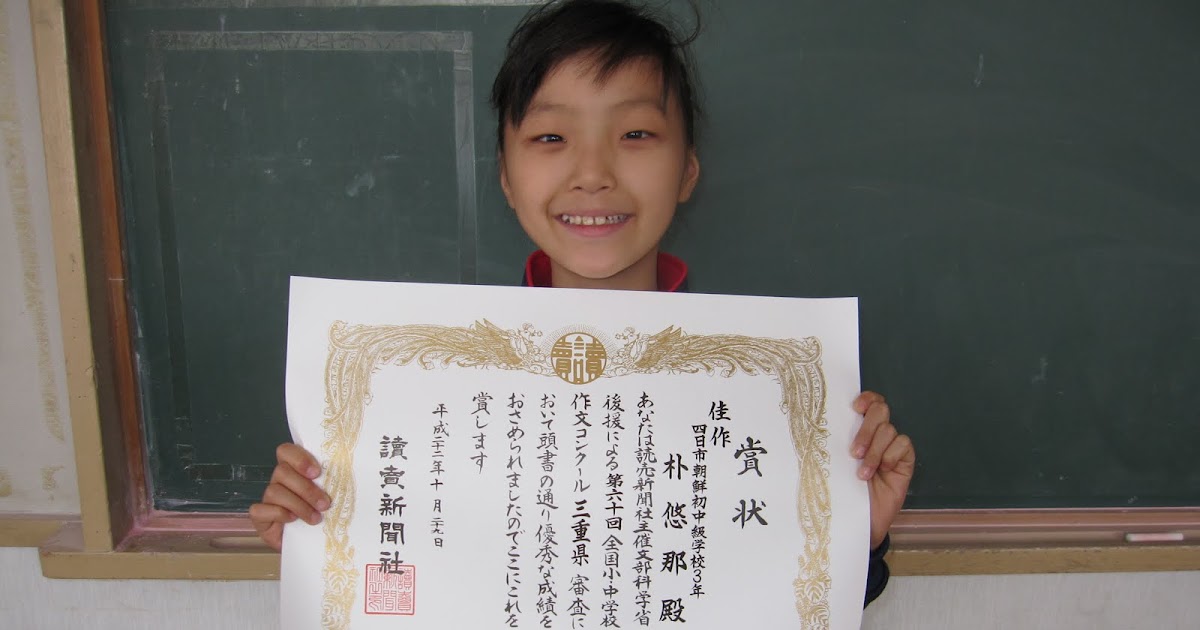 賞状
佳作
四日市朝鮮初中級学校3年
朴悠那殿
あなたは読売新聞社主催文部科学省
後援による第六十回全国小・中学校
作文コンクール三重県審査に
おいて頭書の通り優秀な成績を
おさめられましたのでここにこれを
賞します
平成二十二年十月二九日
讀賣新聞社